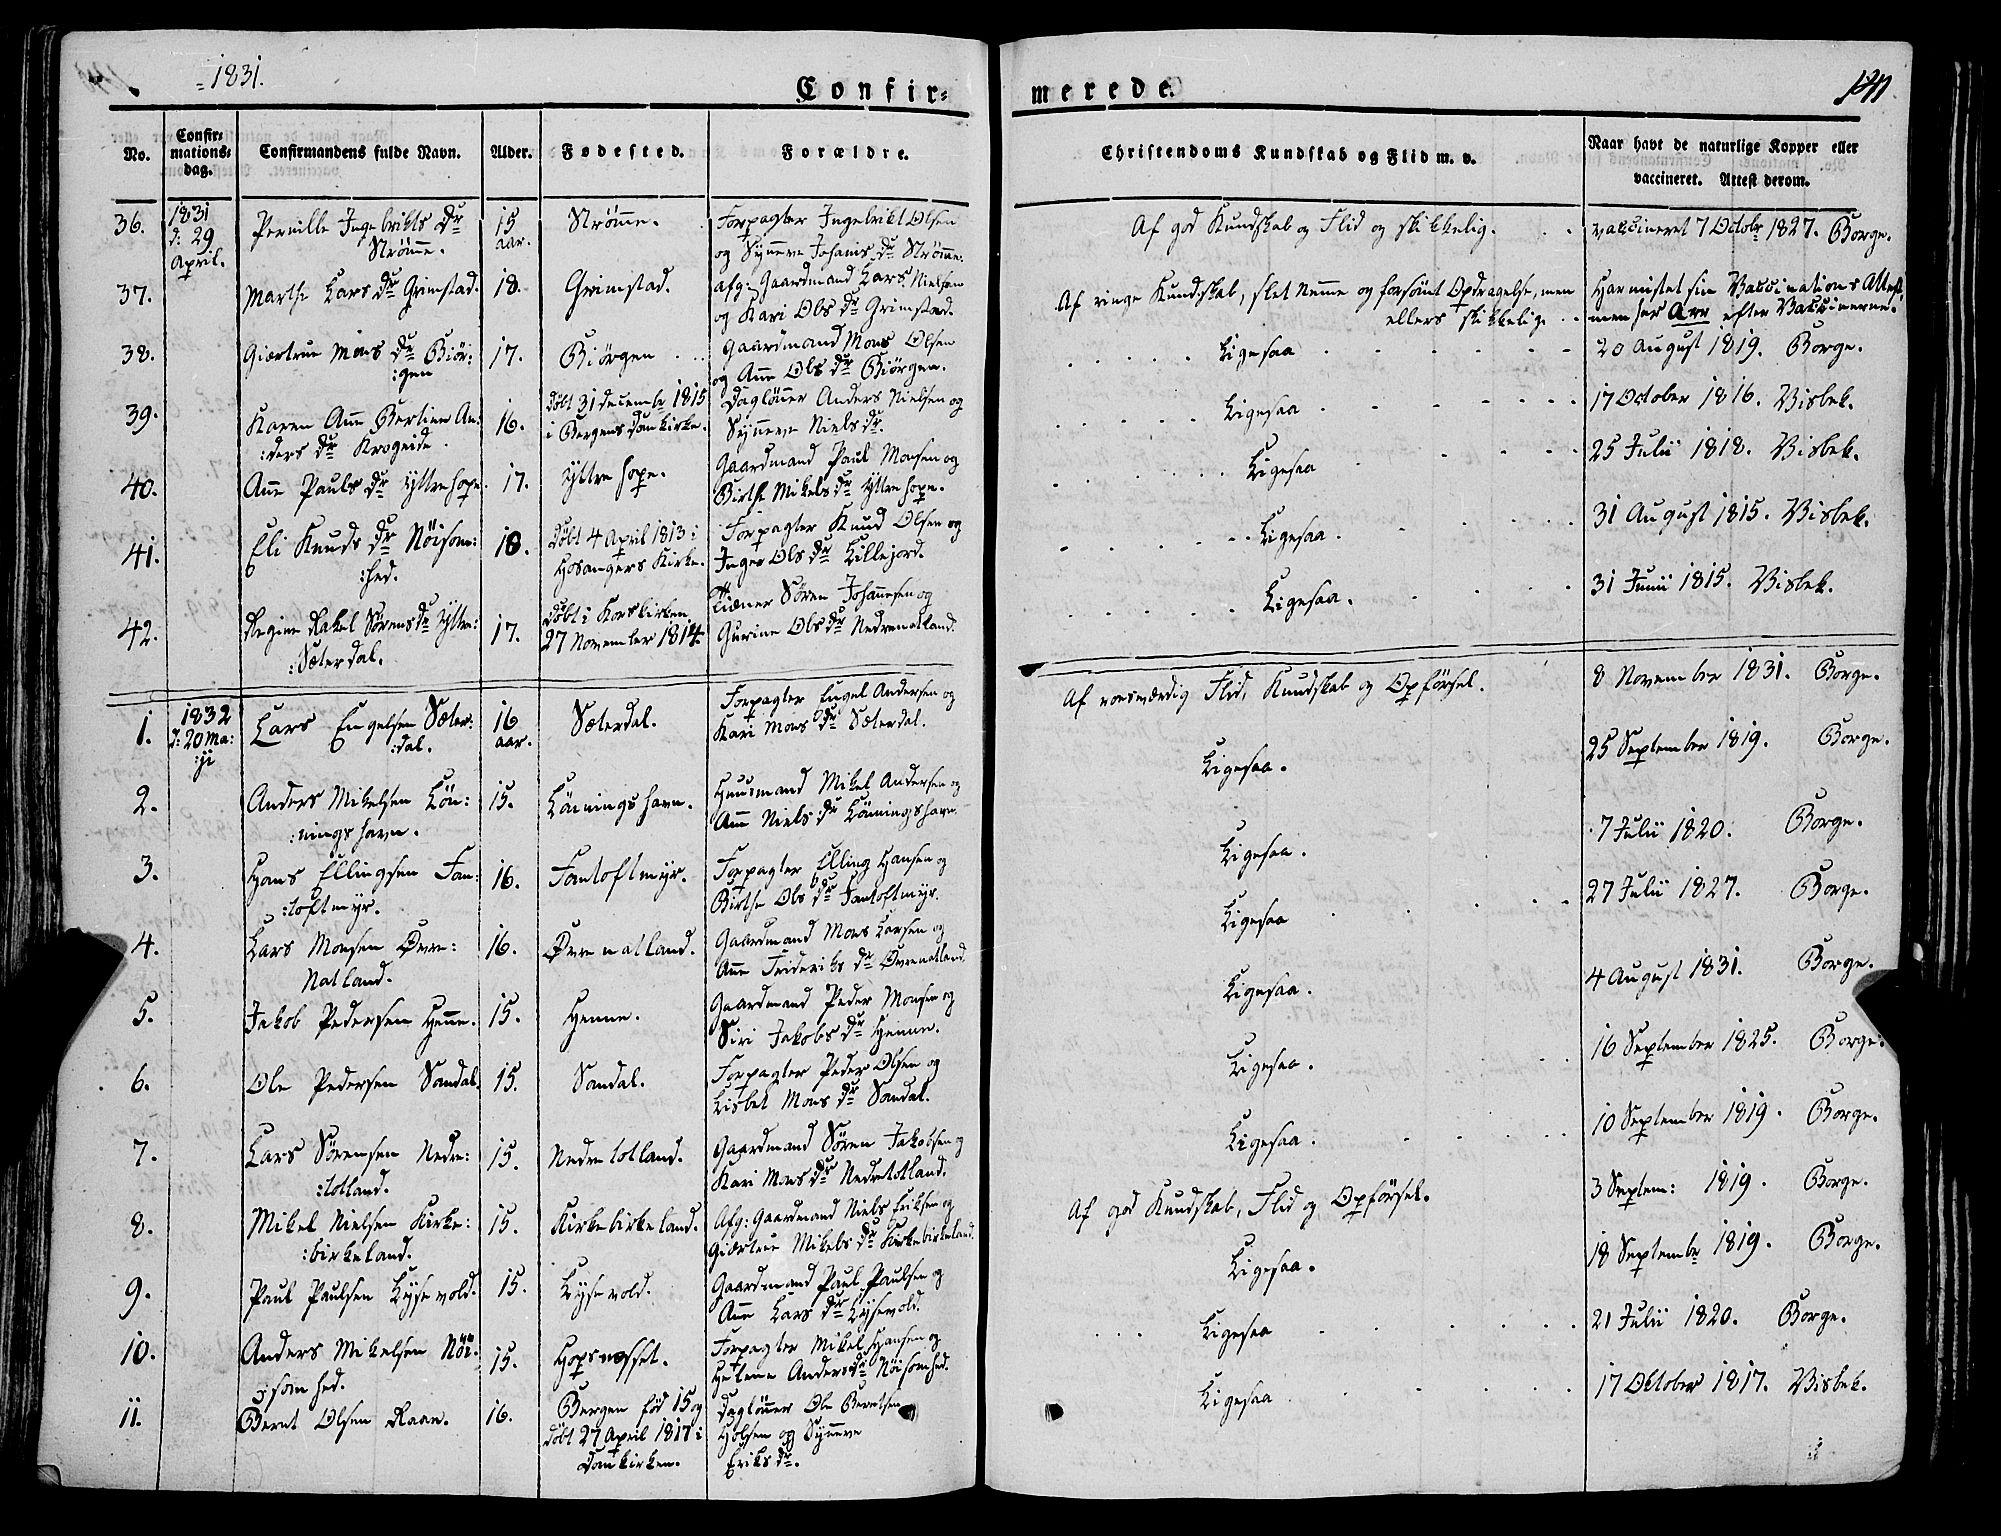 1831.
Confir-
merede.
141
No.
Confir-
mations-
dag.
Confirmandens fulde Navn.
Alder.
Fødested.
Forældre.
Christendoms Kundskab og Flid m. v.
Naar havt de naturlige Kopper eller
vaccineret. Attest derom.
36.
1831
d: 29
April.
Pernille Ingebrikts Dr
Strömme.
15
aar.
Strömme.
Forpagter Ingebrikt Olsen
og Synneve Johanis Dr Strömme.
Af god Kundskab og Flid og skikkelig.
vaccineret 7 Octobr 1827. Borge.
37.
Marthe Lars Dr Grimstad.
18.
Grimstad.
Afg: Gaardmand Lars Nielsen
og Kari Ols Dr Grimstad.
Af ringe Kundskab, slet Nemme og forsömt Opdragelse, men
ellers skikkelig.
Har mistet sin Vaccinations Attest,
men har Arr efter Vaccinerne.
38.
Giærtrue Mons Dr Biör:
:gen
17.
Biörgen
Gaardmand Mons Olsen
og Anne Ols Dr Biörgen.
Ligesaa
20 August 1819. Borge.
39.
Karen Anne Bertine An:
:ders Dr Krogeide
16.
Döbt 31 December 1815
i Bergens Domkirke.
Daglönner Anders Nielsen og
Synneve Niels Dr.
Ligesaa
17 October 1816. Visbek.
40.
Anne Pauls Dr Yttrehope
17.
Yttrehope.
Gaardmand Paul Monsen og
Birthe Mikels Dr Yttrehope.
Ligesaa
25 Julii 1818. Visbek.
41.
Eli Knuds Dr Nöisom:
:hed.
18.
Döbt 4 April 1813 i
Hosangers Kirke.
Forpagter Knud Olsen og
Inger Ols Dr Lillejord.
Ligesaa.
31 August 1815. Visbek.
42.
Regine Rakel Sörens Dr Yttre:
:Sæterdal.
17.
Döbt i Korskirken
27 November 1814.
Tiener Sören Johannesen og
Gurine Ols Dr Nedrenatland.
Ligesaa.
31 Junii 1815. Visbek.
1.
1832
d: 20 Ma:
:ji
Lars Engelsen Sæter:
:dal.
16
aar.
Sæterdal.
Forpagter Engel Andersen og
Kari Mons Dr Sæterdal.
Af roesværdig Flid, Kundskab og Opförsel.
8 November 1831. Borge.
2.
Anders Mikelsen Lön:
:ningshavn.
15.
Lönningshavn.
Huusmand Mikel Andersen og
Anne Niels Dr Lönningshavn.
Ligesaa.
25 September 1819. Borge.
3.
Hans Ellingsen Fan:
:toftmyr.
16.
Fantoftmyr.
Forpagter Elling Hansen og
Birthe Ols Dr Fantoftmyr.
Ligesaa.
7 Julii 1820. Borge.
4.
Lars Monsen Övre:
Natland.
16.
Övrenatland.
Gaardmand Mons Larsen og
Anne Frideriks Dr Övrenatland.
Ligesaa
27 Julii 1827. Borge.
5.
Jakob Pedersen Henne.
15.
Henne.
Gaardmand Peder Monsen og
Siri Jakobs Dr Henne.
Ligesaa.
4 August 1831. Borge.
6.
Ole Pedersen Sandal.
15.
Sandal.
Forpagter Peder Olsen og
Lisbet Mons Dr Sandal.
Ligesaa.
16 September 1825. Borge.
7.
Lars Sörensen Nedre:
:totland.
15.
Nedretotland.
Gaardmand Sören Jakobsen og
Kari Mons Dr Nedretotland.
Ligesaa.
10 September 1819. Borge.
8.
Mikel Nielsen Kirke:
:birkeland.
15.
Kirkebirkeland.
Afg: Gaardmand Niels Eriksen og
Giærtrue Mikels Dr Kirkebirkeland.
Af god Kundskab, Flid og Opförsel.
3 Septem: 1819. Borge.
9.
Paul Paulsen Lysevold.
15.
Lysevold.
Gaardmand Paul Paulsen og
Anne Lars Dr Lysevold.
Ligesaa.
18 Septembr 1819. Borge.
10.
Anders Mikelsen Nöi:
:somhed.
15.
Hopsnesset.
Forpagter Mikel Hansen og
Helene Anders Dr Nöisomhed.
Ligesaa
21 Julii 1820. Borge.
11.
Bernt Olsen Raae.
16.
Bergen föd 15 og
Döbt 27 April 1817 i
Domkirken.
Daglönner Ole Berntsen
Holsen og Synneve
Eriks Dr.
Ligesaa
17 Oktober 1817. Visbek.